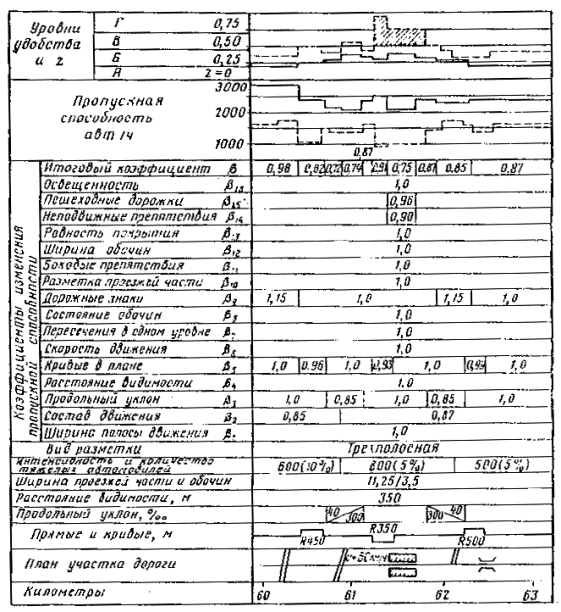 Уровни удобства и z
Г 0,75
В 0,50
Б 0,25
А z=0
Пропускная способность авт/ч
3000
2000
1000
0,87
Коэффициенты изменения пропускной способности
Итоговый коэффициент β 0,98 0,82 0,72 0,74 0,91 0,75 0,87 0,85 0,87
Освещенность 1,0
Пешеходные дорожки β15 0,96
Неподвижные препятствия β14 0,90
Ровность покрытия 1,0
Ширина обочин β12 1,0
Боковые препятствия 1,0
Разметка проезжей части β10 1,0
Дорожные знаки 1,15 1,0 1,15 1,0
Состояние обочин 1,0
Пересечения в одном уровне 1,0
Скорость движения β6 1,0
Кривые в плане β5 1,0 0,96 1,0 0,93 1,0 0,95 1,0
Расстояние видимости β4 1,0
Продольный уклон β3 1,0 0,85 1,0 0,85 1,0
Состав движения β2 0,85 0,87
Ширина полосы движения 1,0
Вид разметки Трехполосная
Интенсивность и количество тяжелых автомобилей 600(10%) 800(5%) 500(5%)
Ширина проезжей части и обочин 11,25/3,5
Расстояние видимости, м 350
Продольный уклон, ‰ 40 300 300 40
Прямые и кривые, м R450 R350 R500
План участка дороги
Километры 60 61 62 63